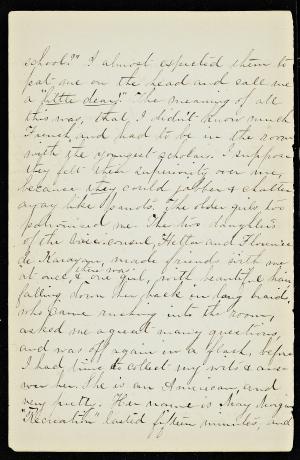 school?" I almost expected them to
pat me on the head and call me
a "little dear". The meaning of all
this was, that I didn't know much
French, and had to be in the room
with the youngest scholars. I suppose
they felt their superiority over me,
because they could jabber & chatter
away like The older girls, too
patronized me. The two daughters
of the Vice-consul, and Florence
de made friends with me
at once, & there was one girl, with beautiful hair
falling down her back in long braids,
who came rushing into the room,
asked me a great many questions,
and was off again in a flash, before
I had time to collect my wits & ans-
wer her. She is an American, and
very pretty. Her name is May
"Recreation" lasted fifteen minutes, and